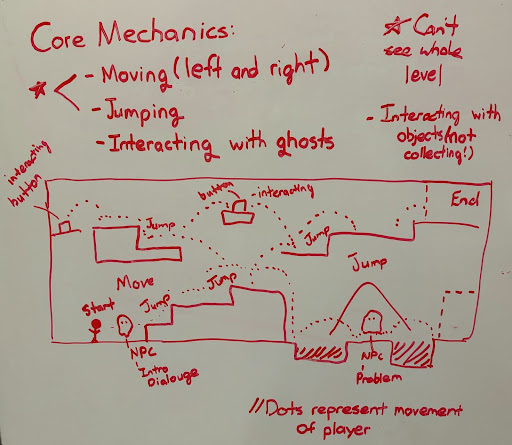 Core Mechanics:
- Moving (left and right)
- Jumping
- Interacting with ghosts
Can't
see whole
level
- Interacting with
objects (not
collecting!)
interacting
button
button
- interacting
End
Jump
Jump
Jump
Move
Jump
Jump
Start
NPC
Intro
Dialouge
NPC
Problem
//Dots represent movement
of player